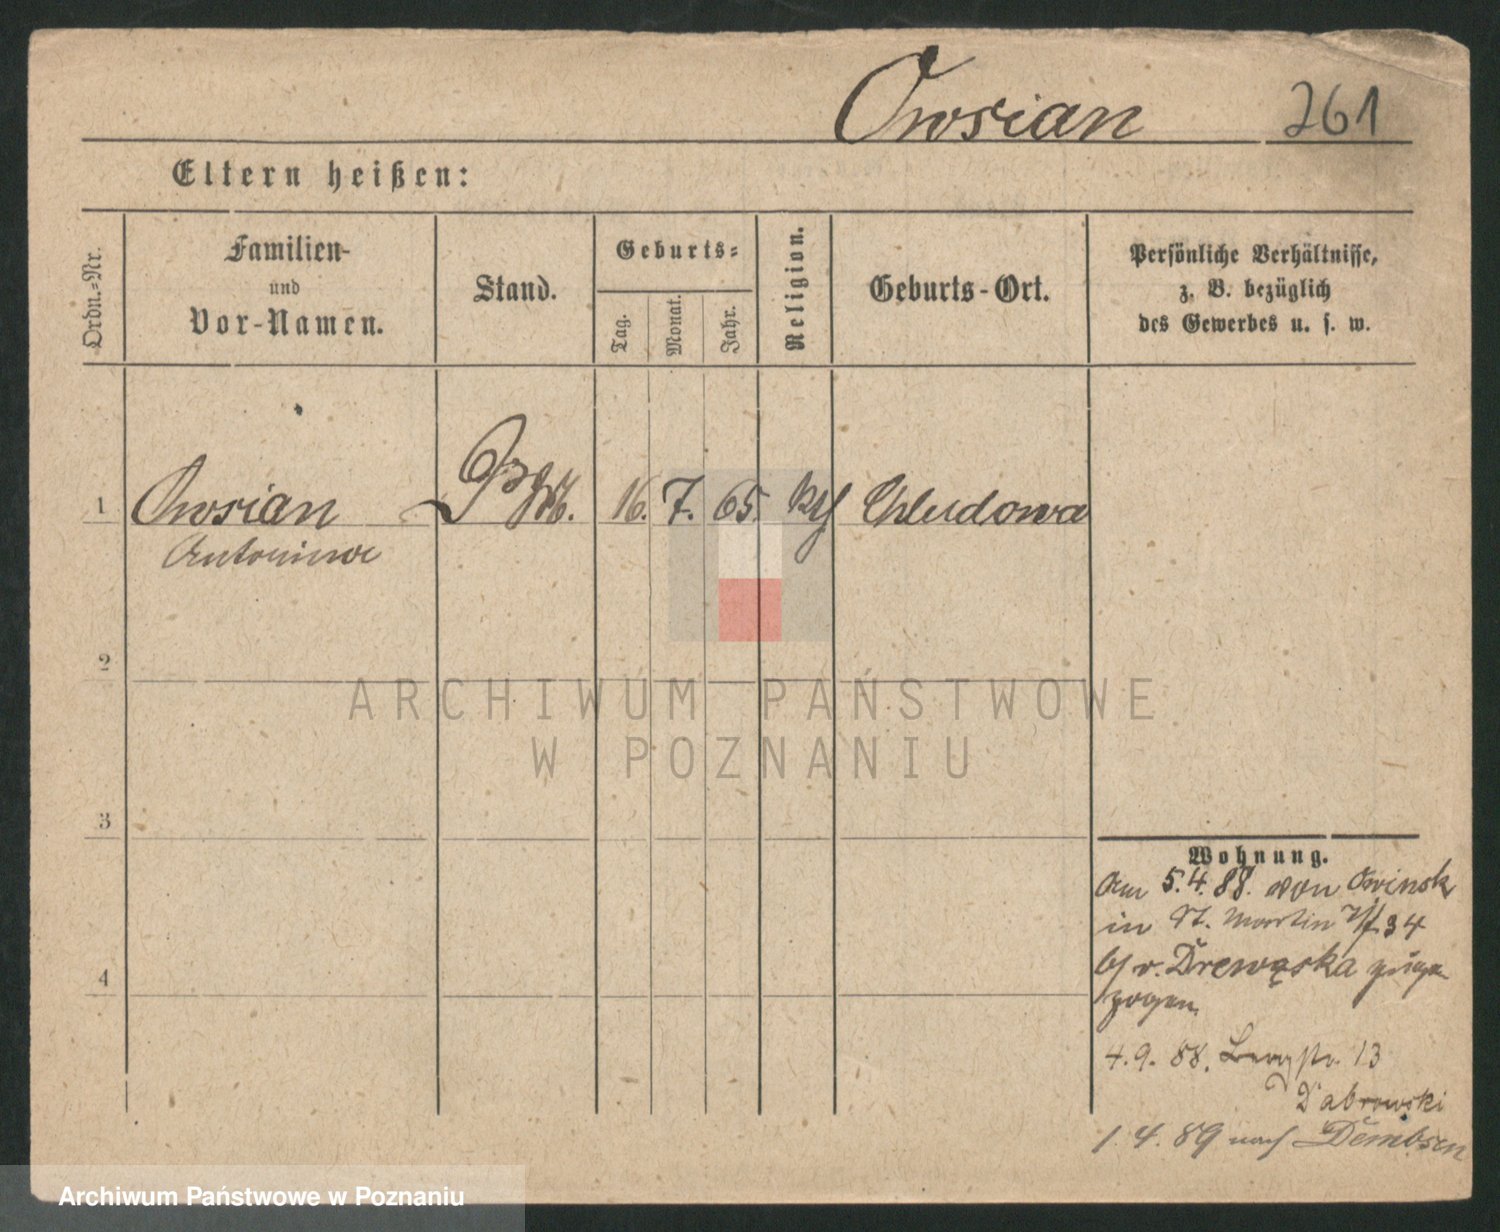 Owsian 261
Eltern heißen:
Ordn.-Nr.
Familien-
und
Vor-Namen.
Stand.
Geburts-
Tag.
Monat.
Jahr.
Religion.
Geburts-Ort.
Persönliche Verhältnisse,
z. B. bezüglich
des Gewerbes u. s. w.
1 Owsian 16. 7. 65. kth Chludowa
Antonina
2
3
4
Wohnung.
Am 5.4.88. von Owinsk
in St. Martin 34
b/ v. Drewęska zuge-
zogen.
4.9.88. Bergstr. 13
Dabrowski
1.4.89 nach Dembsen
ARCHIWUM PAŃSTWOWE
W POZNANIU
Archiwum Państwowe w Poznaniu